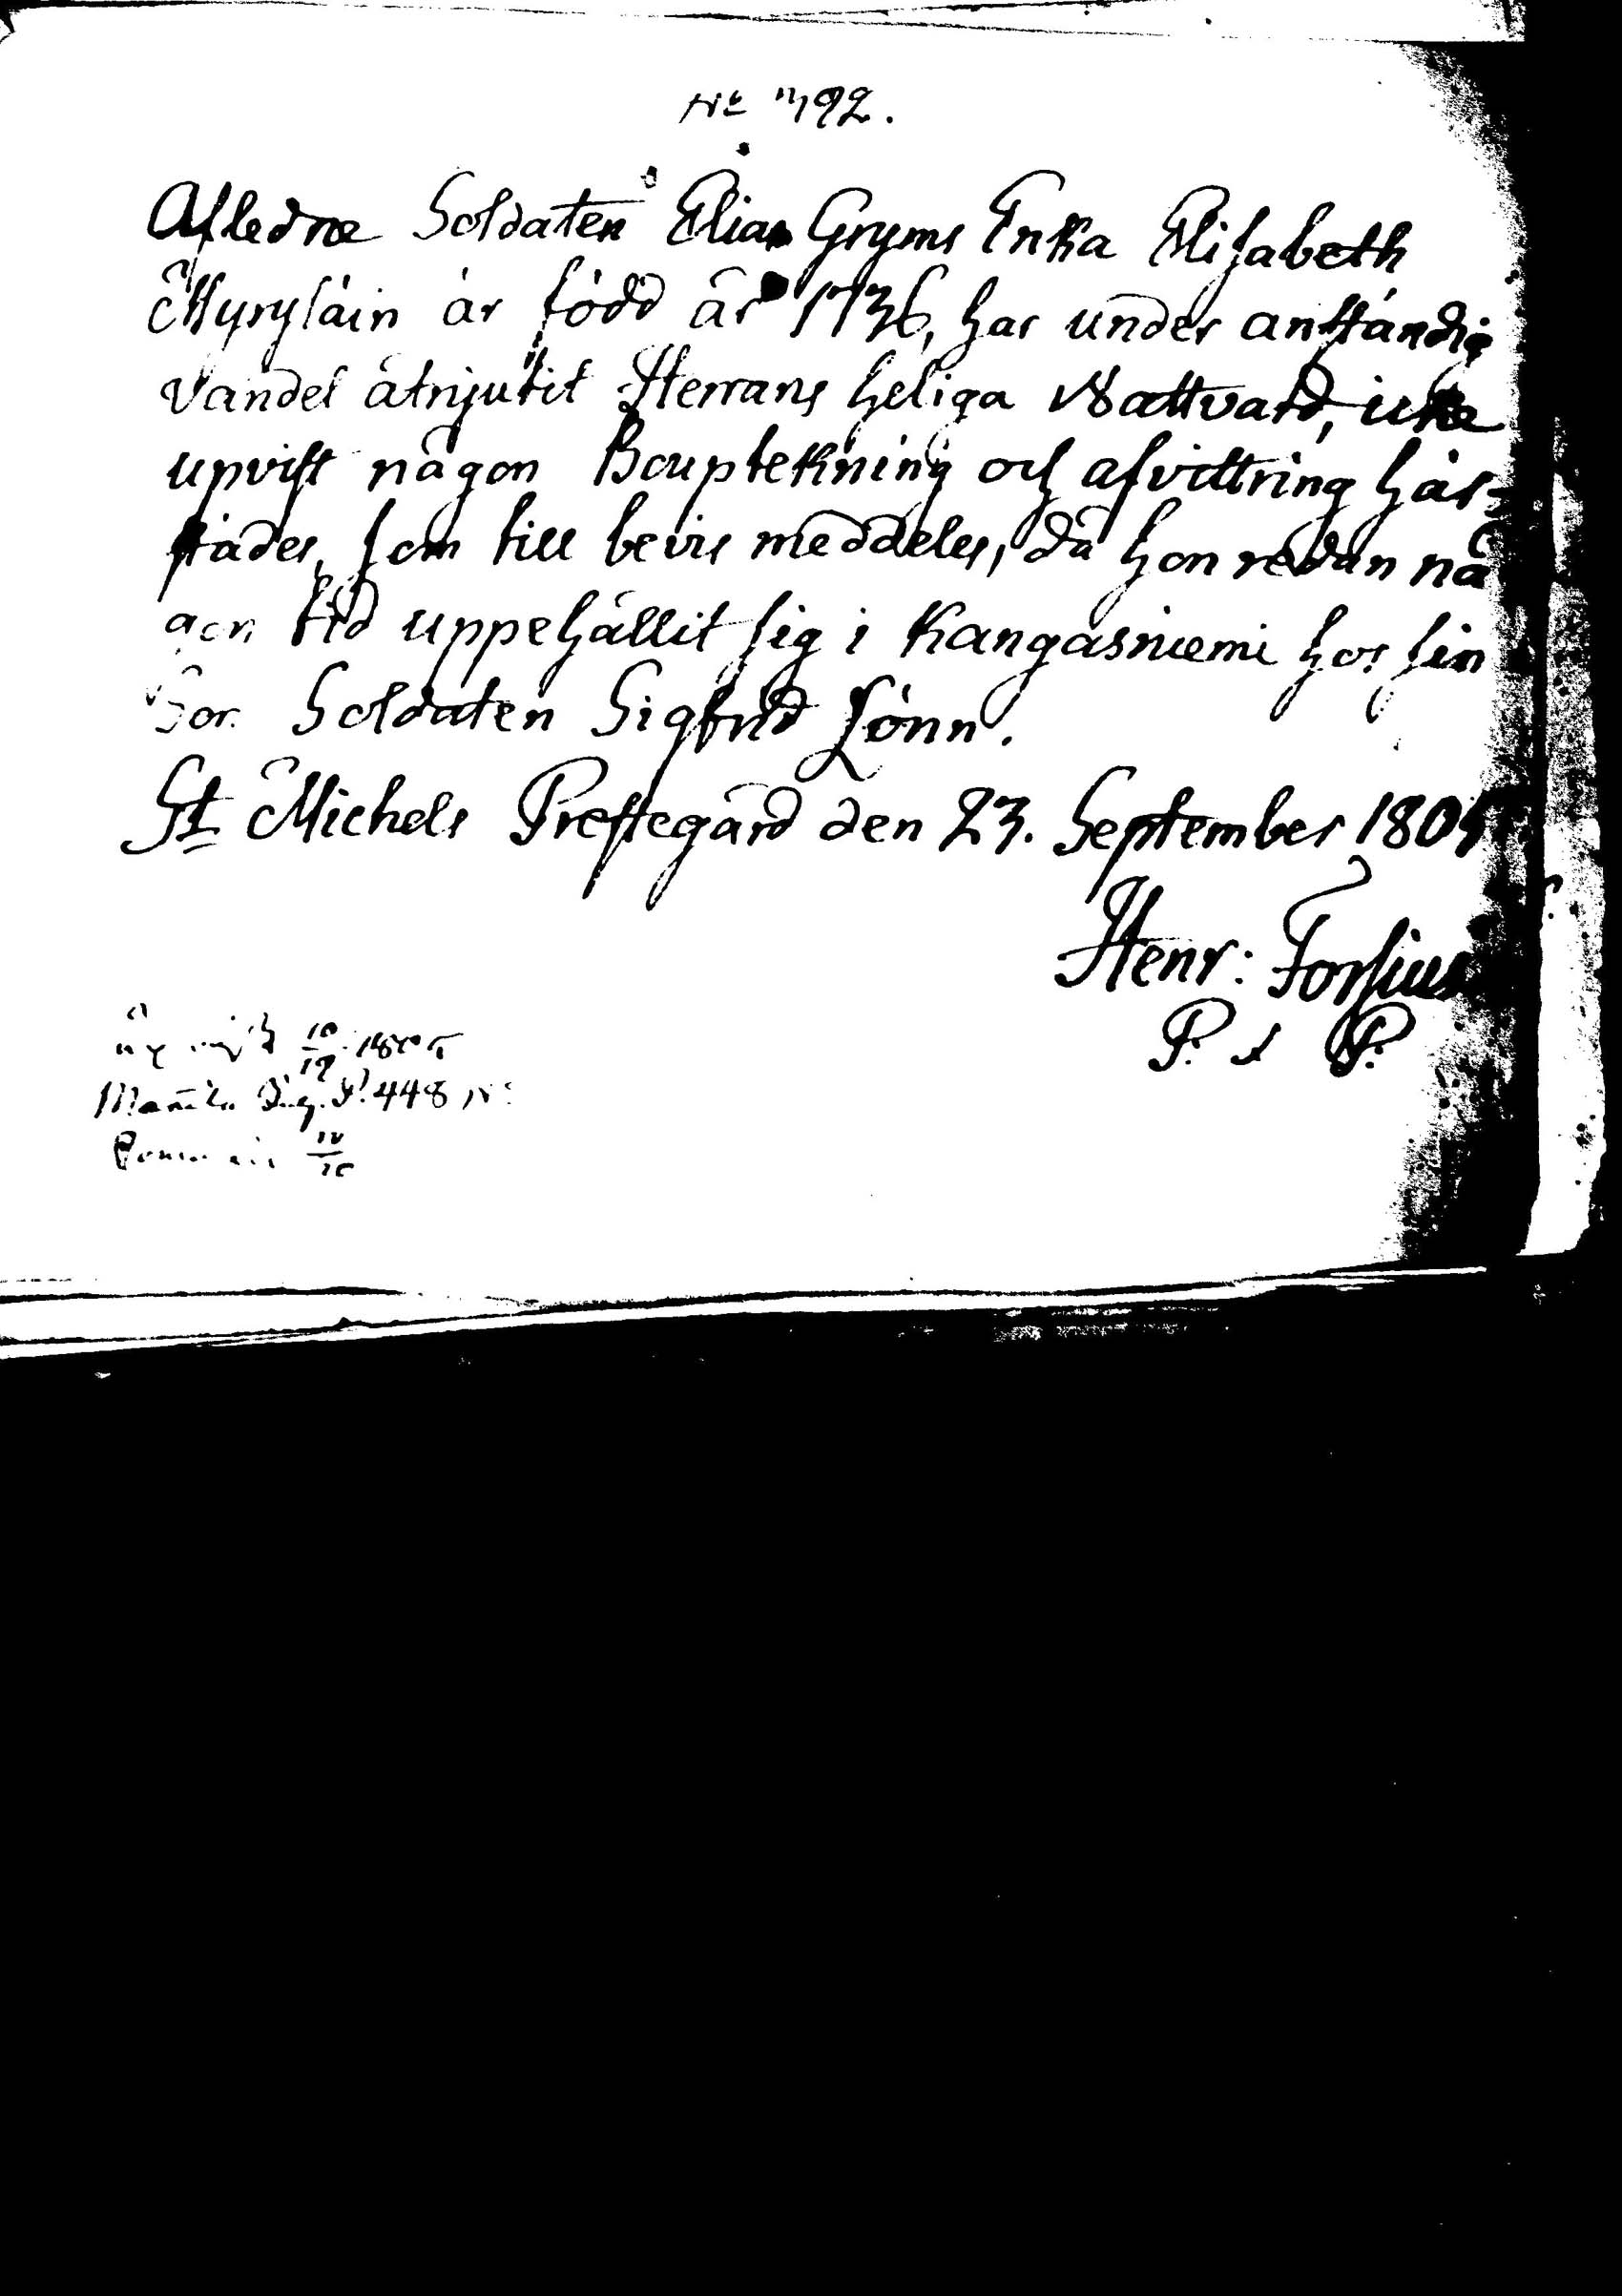 No 392.
Afledne Soldaten Elias Gryms Enka Elisabeth
Myryläin är född år 1736, har under anständig
Vandel åtnjutit Herrans heliga Nattvard, icke
upvist någon Bouptekning och afvittring här-
städes, som till bevis meddeles, då hon redan nå
gon tid uppehållit sig i Kangasniemi hos sin
Son Soldaten Sigfrid Lönn.
St Michels Prestegård den 23. September 1805
Henr: Forsius
P. & P.
10/19 1805
448